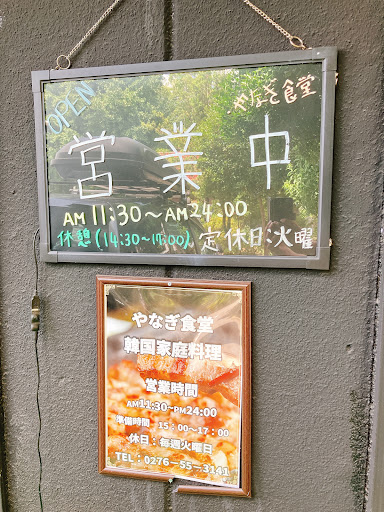 OPEN
やなぎ食堂
営業中
AM 11:30～AM 24:00
休憩(14:30～17:00) 定休日:火曜
やなぎ食堂
韓国家庭料理
営業時間
AM11:30~PM24:00
準備時間 15：00～17：00
休日：毎週火曜日
TEL：0276－55－3141